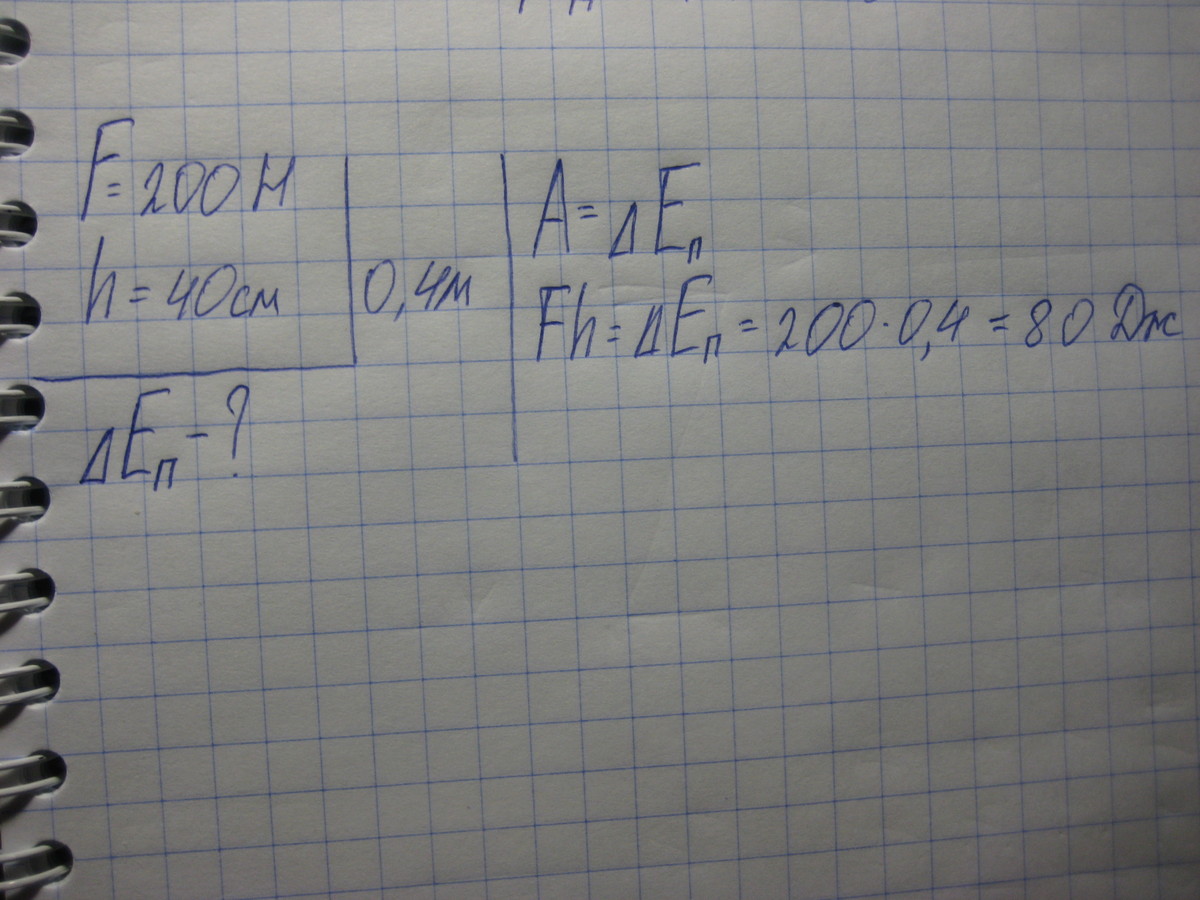 F = 200 Н
h = 40 см
0,4 м
ΔEп - ?
A = ΔEп
Fh = ΔEп = 200 · 0,4 = 80 Дж